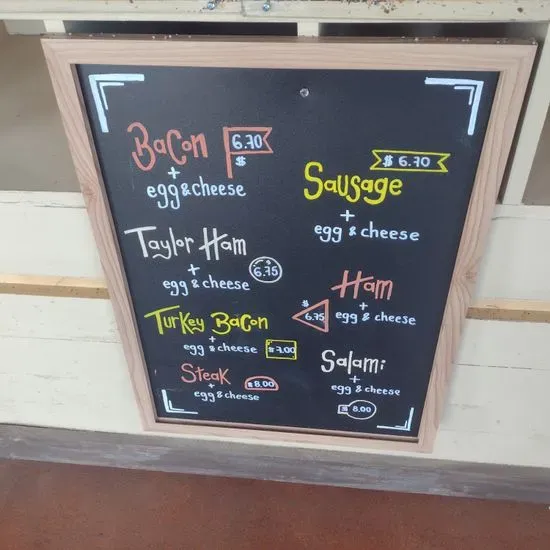 Bacon 6.70
$
+
egg & cheese
$ 6.70
Sausage
+
egg & cheese
Taylor Ham
+
egg & cheese 6.75
Ham
+
$
6.75 egg & cheese
Turkey Bacon
+
egg & cheese $7.00
Steak $8.00
+
egg & cheese
Salami
+
egg & cheese
$ 8.00